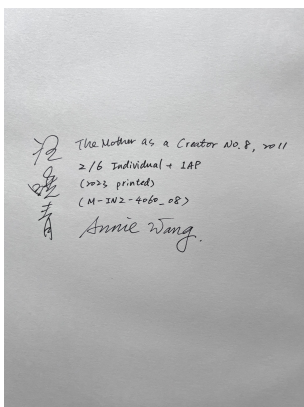 汪曉青
The Mother as a Creator No.8, 2011
2/6 Individual + 1AP
(2023 printed)
(M-IN2-4060_08)
Annie Wang.